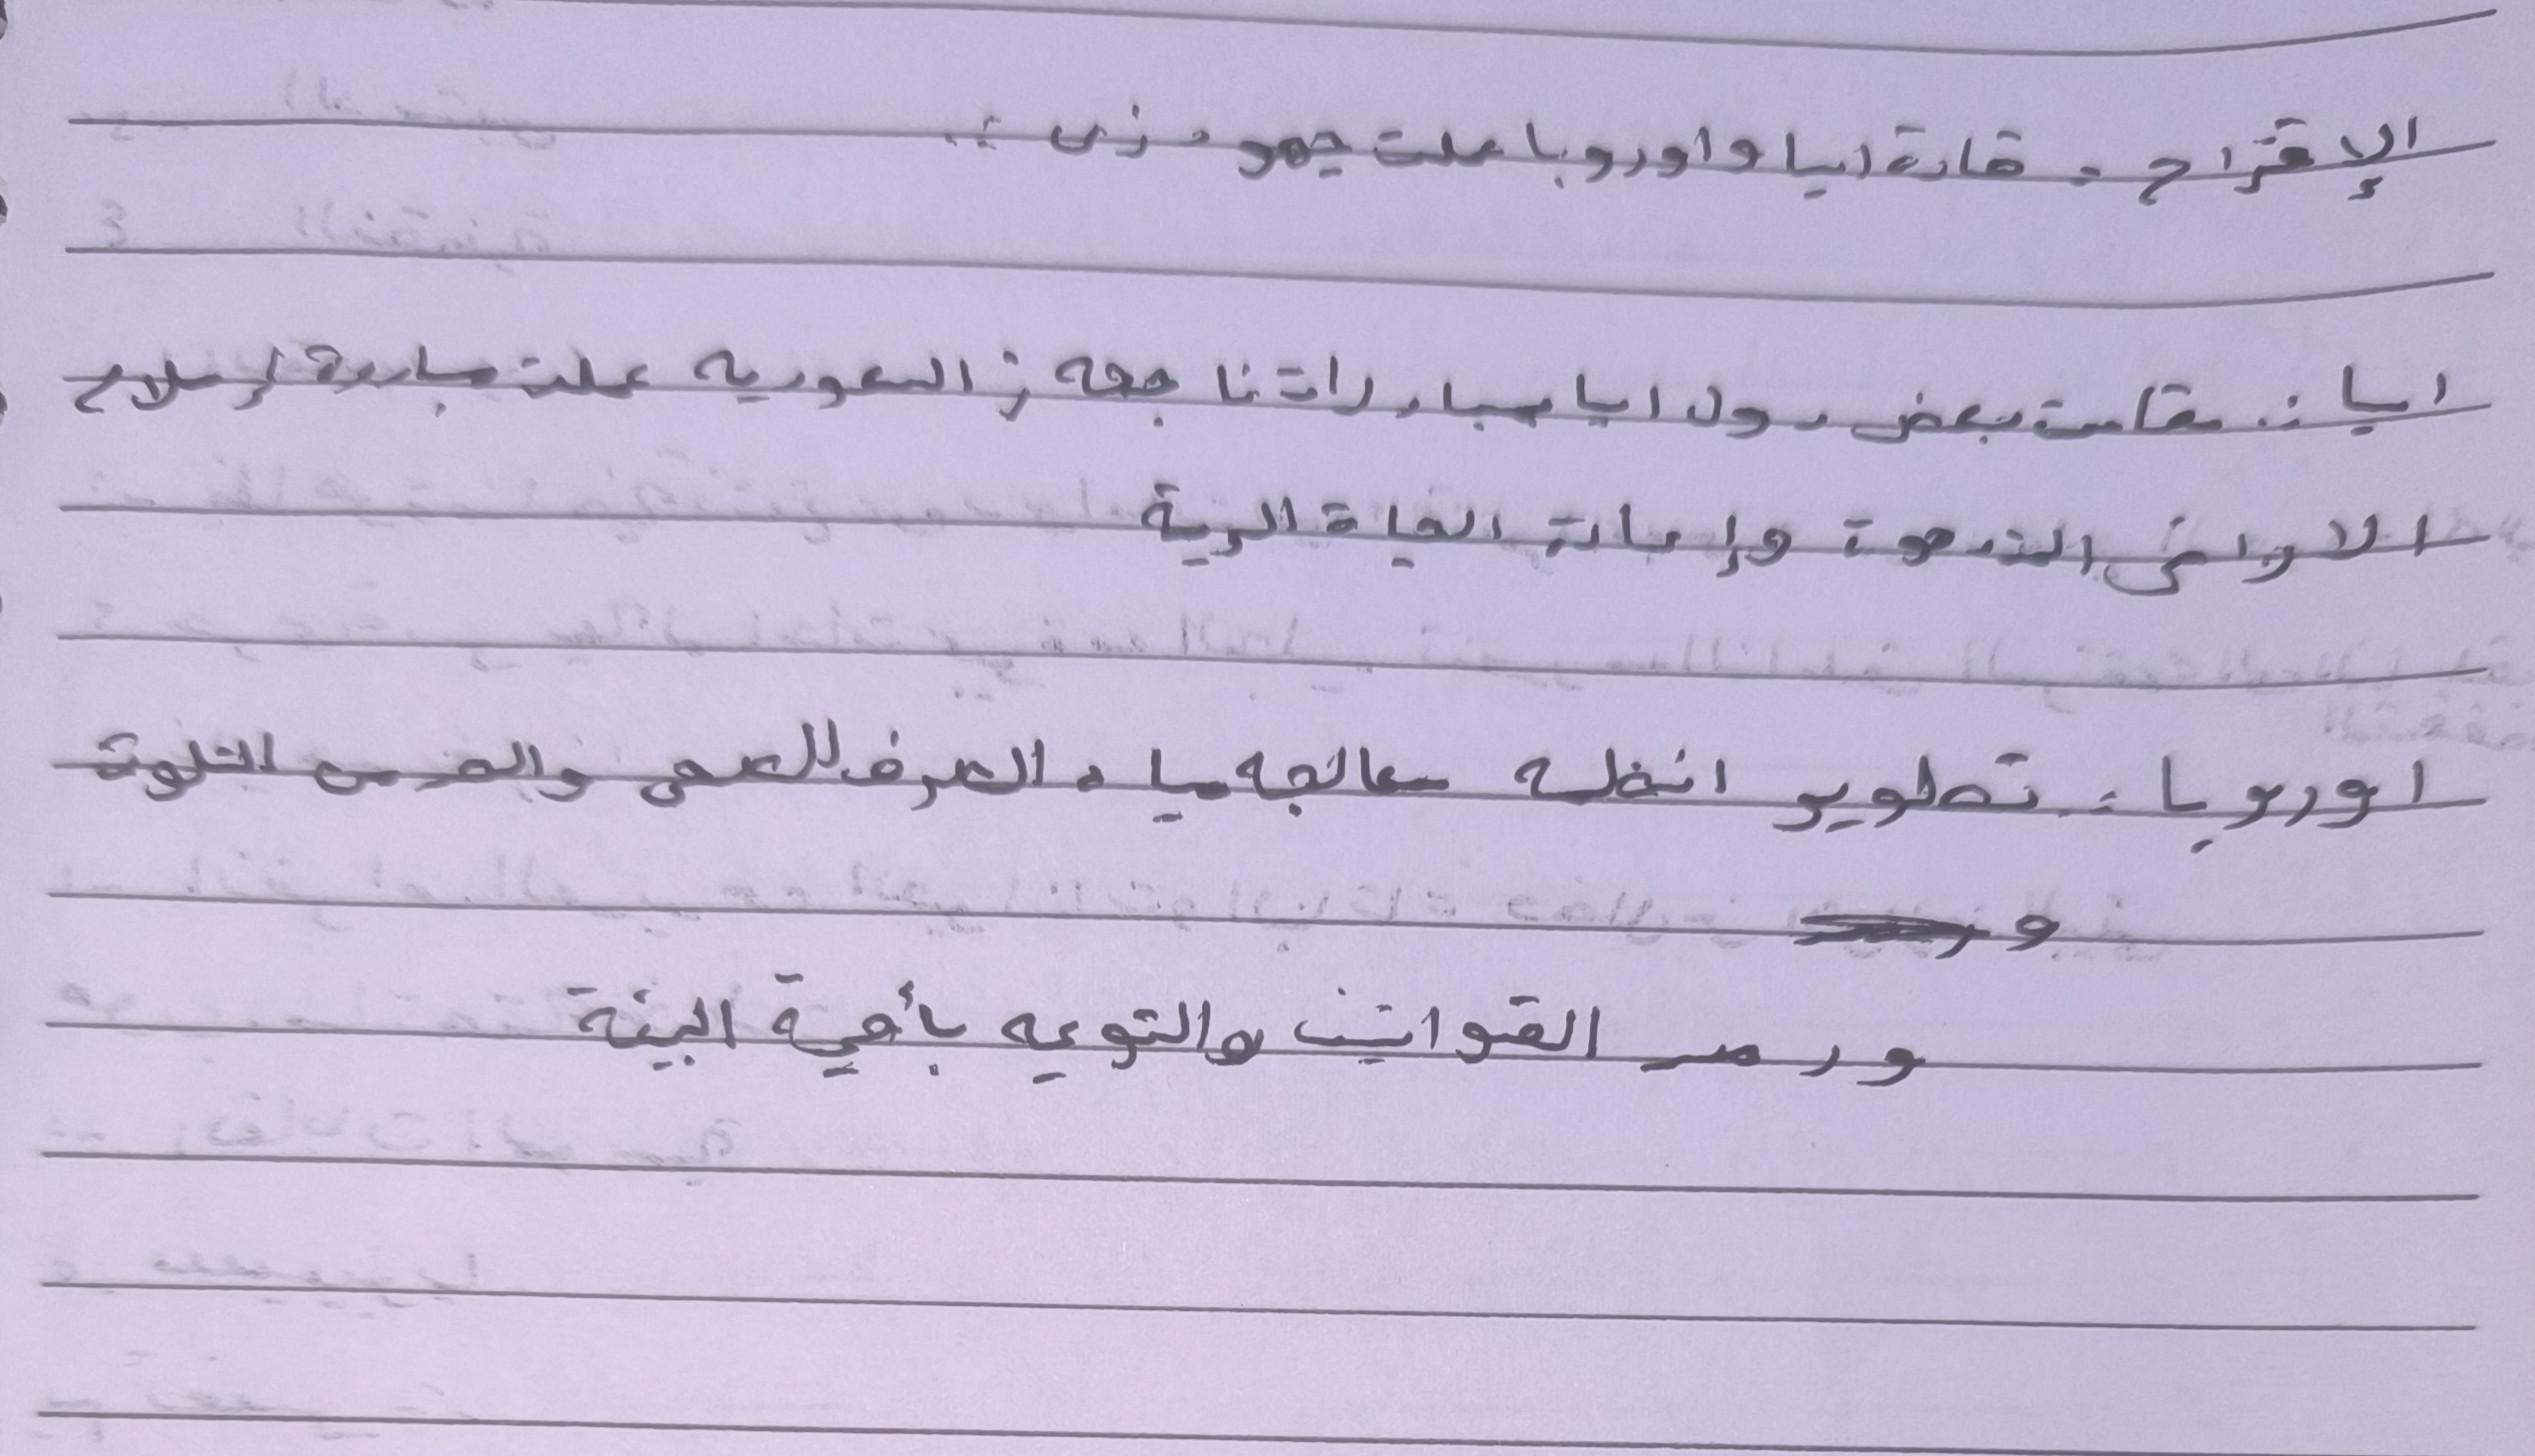 الإقتراح : قارة اسيا و اوروبا عملت جهود زي :.
اسيا : قامت بعض دول اسيا مبادرات ناجحه زي السعوديه عملت مبادرة لإصلاح
الاراضي المتدهورة وإعادة الحياة البرية
اوروبا : تطوير انظمه معالجه مياه الصرف الصحي والصرف الملوثة
و
ورصد القوانين والتوعيه بأهمية البيئة